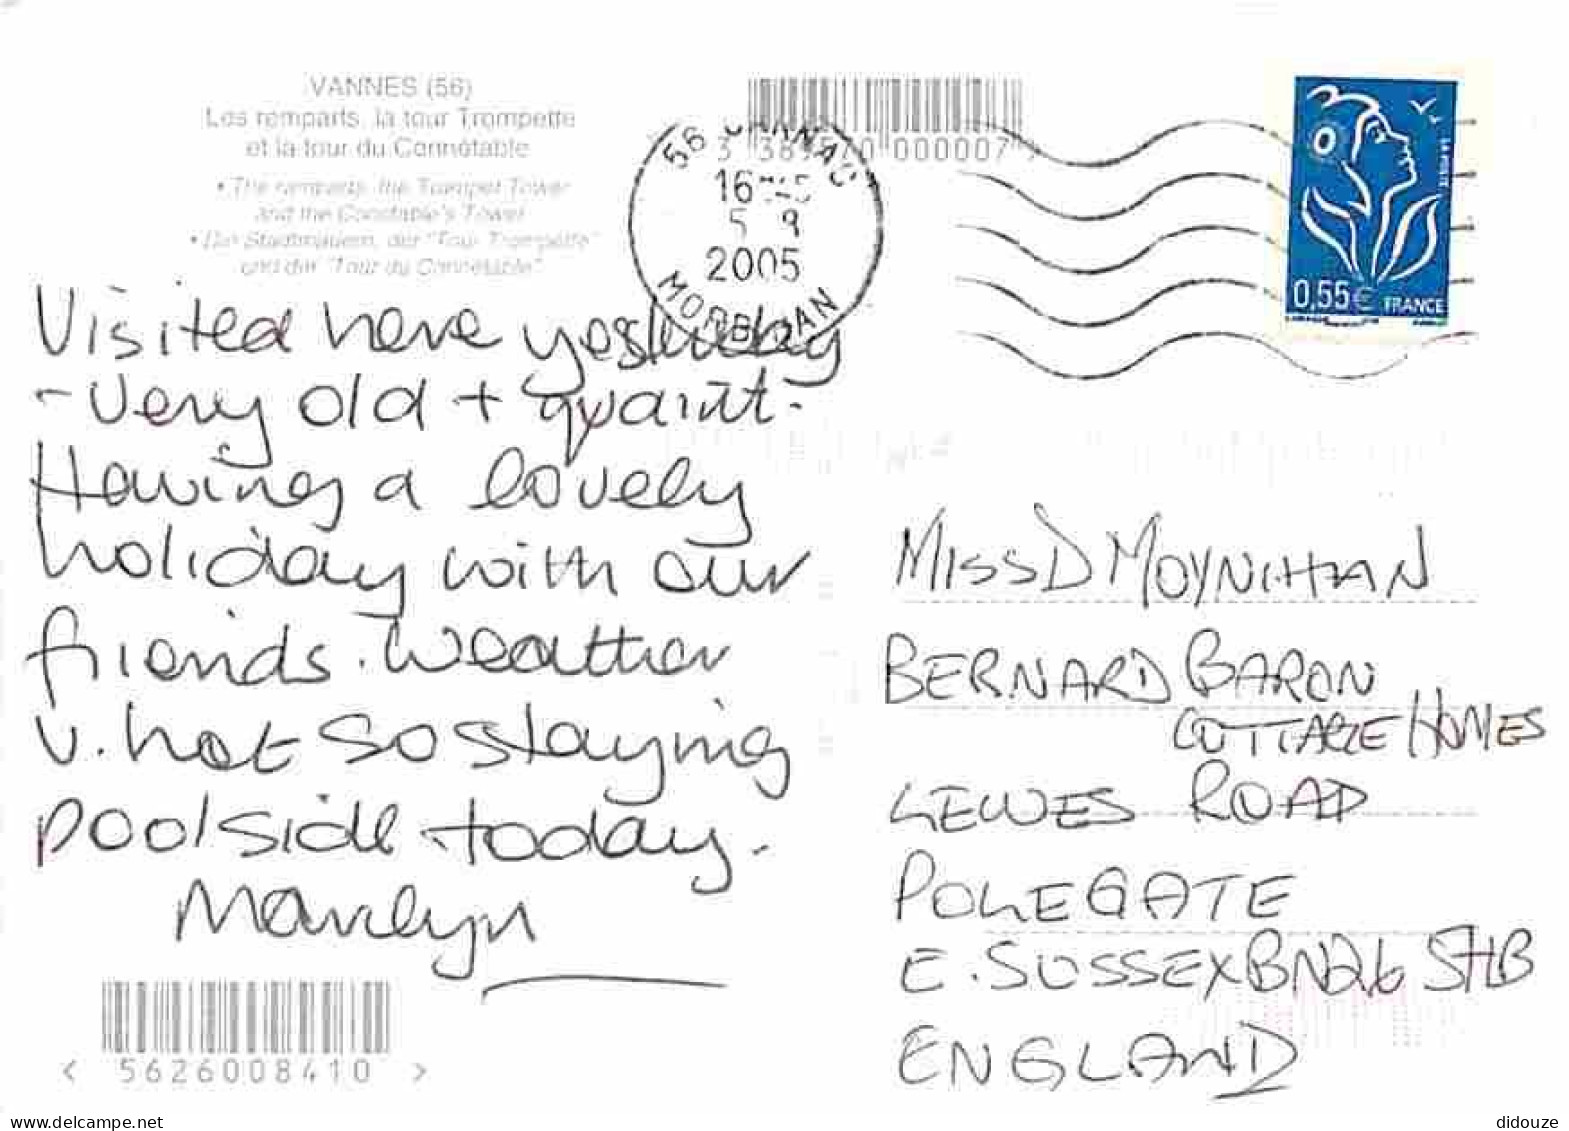 VANNES (56)
Les remparts, la tour Trompette
et la tour du Connétable
• The ramparts, the Trumpet Tower
and the Constable's Tower
• Die Stadtmauern, der "Tour Trompette"
und der "Tour du Connétable"
56 CARNAC
16
5 9
2005
MORBIHAN
000007
LA POSTE
0,55€ FRANCE
Visited here yesterday
- very old + quaint.
Having a lovely
holiday with our
friends. Weather
v. hot so staying
poolside today.
Marilyn
MISS D MOYNIHAN
BERNARD BARON
COTTAGE HOMES
LEWES ROAD
POLEGATE
E. SUSSEX BN26 5HB
ENGLAND
< 5626008410 >
www.delcampe.net
didouze